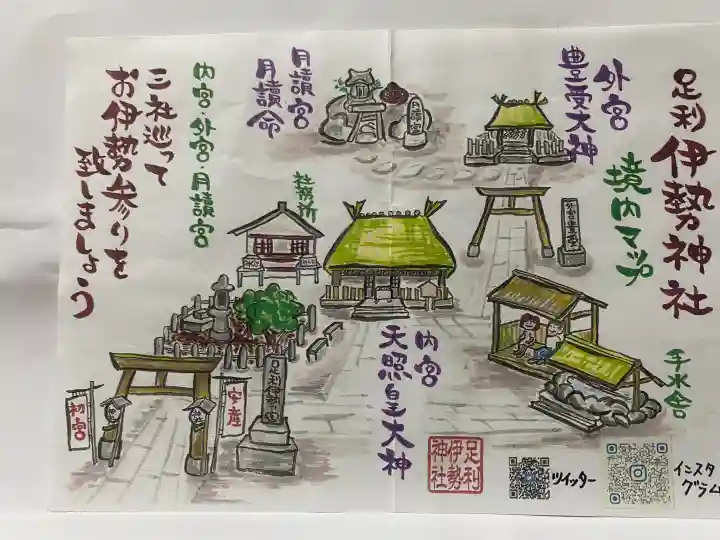 足利伊勢神社
境内マップ
外宮
豊受大神
月讀宮
月讀命
内宮・外宮・月讀宮
三社巡って
お伊勢参りを
致しましょう
月讀宮
社務所
手水舎
内宮
天照皇大神
初宮
安産
足利
伊勢
神社
ツイッター
インスタ
グラム